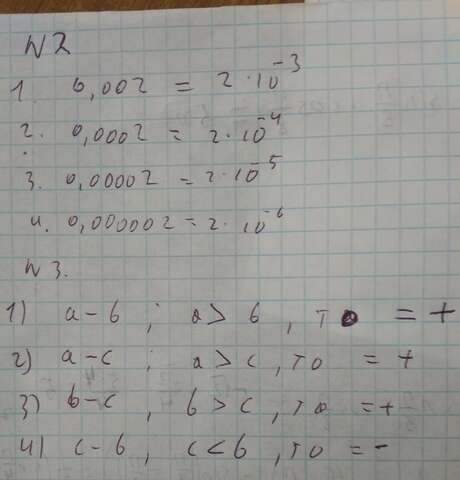 N2
1. 0,002 = 2·10⁻³
2. 0,0002 = 2·10⁻⁴
3. 0,00002 = 2·10⁻⁵
4. 0,000002 = 2·10⁻⁶
N3.
1) a-b ; a > b , то = +
2) a-c ; a > c , то = +
3) b-c , b > c , то = +
4) c-b , c < b , то = -